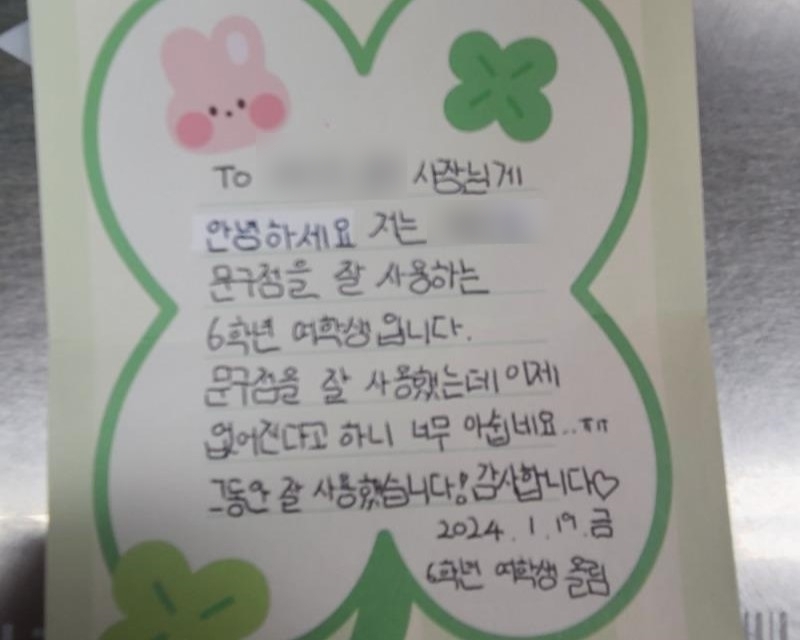 To 사장님게
안녕하세요 저는
문구점을 잘 사용하는
6학년 여학생입니다.
문구점을 잘 사용했는데 이제
없어진다고 하니 너무 아쉽네요..ㅠㅠ
그동안 잘 사용했습니다! 감사합니다♡
2024.1.19.금
6학년 여학생 올림